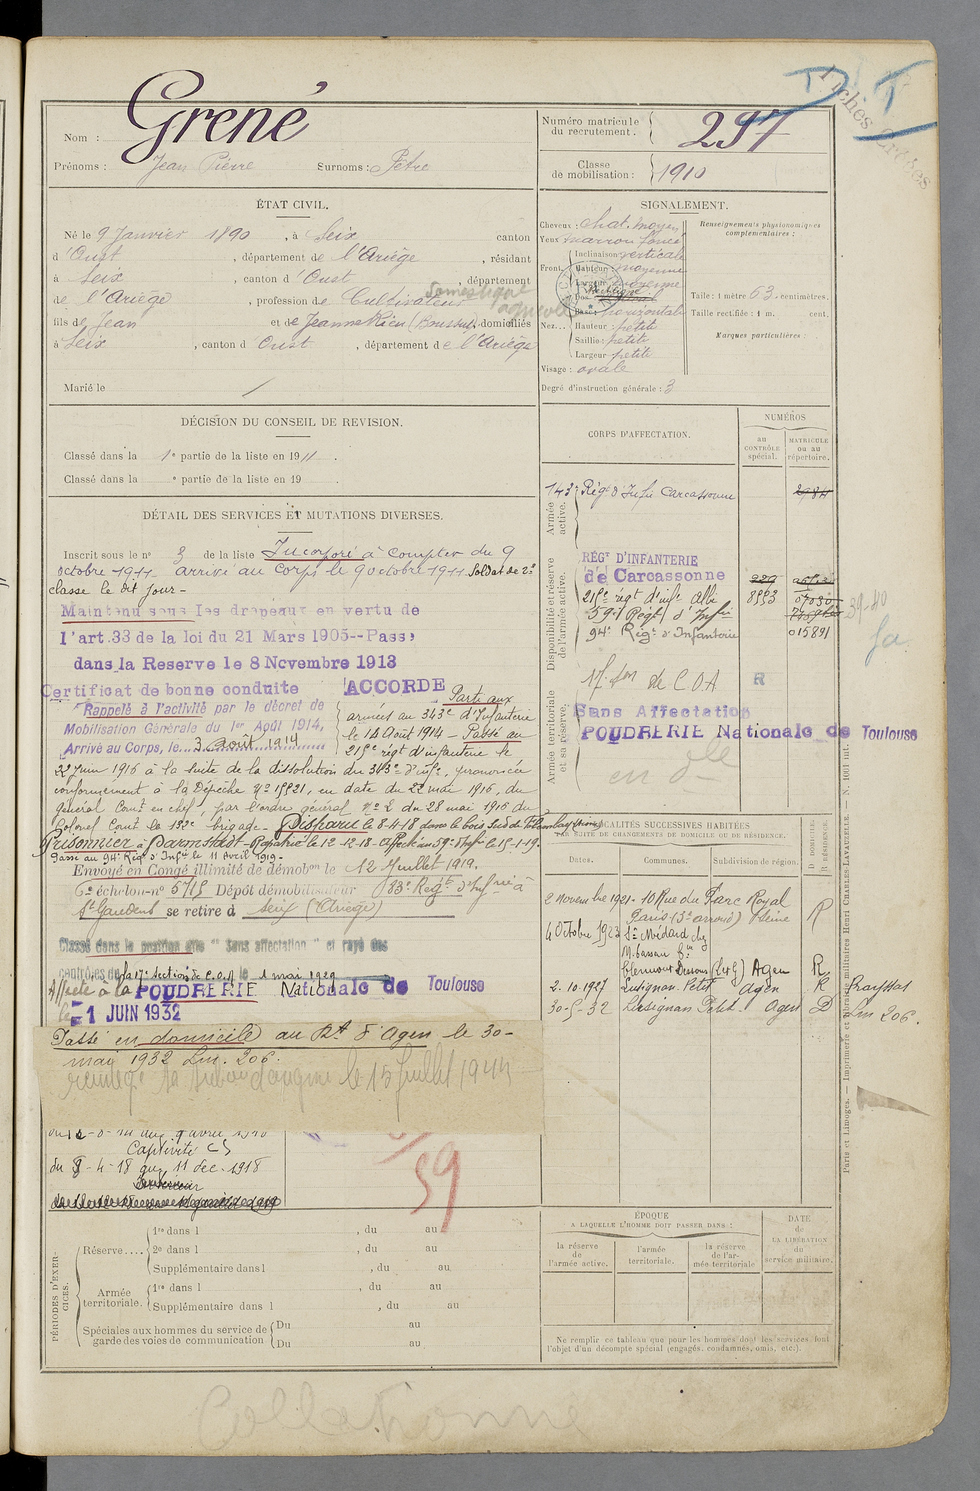 Nom : Grené
Prénoms : Jean Pierre Surnoms : Pétre
ÉTAT CIVIL.
Né le 9 Janvier 1890, à Seix canton
d'Oust, département de l'Ariège, résidant
à Seix, canton d'Oust, département
de l'Ariège, profession de Cultivateur
Domestique agricole
fils de Jean et de Jeanne Rieu (Boussu), domiciliés
à Seix, canton d Oust, département de l'Ariège
Marié le /
DÉCISION DU CONSEIL DE REVISION.
Classé dans la 1e partie de la liste en 1911.
Classé dans la e partie de la liste en 19 .
DÉTAIL DES SERVICES ET MUTATIONS DIVERSES.
Inscrit sous le no 3 de la liste Incorporé à compter du 9
octobre 1911 arrivé au corps le 9 octobre 1911 Soldat de 2e
classe le dit jour -
Maintenu sous les drapeaux en vertu de
l'art.33 de la loi du 21 Mars 1905--Passé
dans la Reserve le 8 Novembre 1913
Certificat de bonne conduite ACCORDÉ
Rappelé à l'activité par le décret de
Mobilisation Générale du 1er Août 1914,
Arrivé au Corps, le... 3 Août 1914
Parti aux
armées au 343e d'Infanterie
le 14 Août 1914 - Passé au
215e régt d'infanterie le
22 Juin 1916 à la suite de la dissolution du 343e d'Infie, prononcée
conformément à la Dépêche No 15921, en date du 22 mai 1916, du
général Comt en chef, par l'ordre général No 2 du 28 mai 1916 du
Colonel Comt la 132e brigade - Disparu le 8-4-18 dans le bois Sud de
Prisonnier à Darmstadt - Rapatrié le 12-12-18 - Affecté au 59e d'Infie le 15-1-19.
Passé au 94e Régt d'Infie le 11 Avril 1919.
Envoyé en Congé illimité de démobon le 12 Juillet 1919.
6e échelon no 5715 Dépôt démobilisateur 83e Regt d'Infrie à
St Gaudens se retire à Seix (Ariège)
Classé dans la position dite "Sans affectation" et rayé des
contrôles de la 17e Section de C.O.A le 1 mai 1929
Affecté à la POUDRERIE Nationale de Toulouse
le 1 JUIN 1932
Passé en domicile au Rt d'Agen le 30
mai 1932 Lm. 206.
le 15 Juillet 1944
Captivité CS
du 8-4-18 au 11 dec. 1918
59
PÉRIODES D'EXERCICES.
Réserve.... 1re dans l , du au
2e dans l , du au
Supplémentaire dans l , du au
Armée territoriale. 1re dans l , du au
Supplémentaire dans l , du au
Spéciales aux hommes du service de garde des voies de communication Du au
Du au
Numéro matricule du recrutement : 297
Classe de mobilisation : 1910
Fiches Croisées
SIGNALEMENT.
Cheveux : chat. moyen
Yeux marron foncé
Front Inclinaison verticale
Hauteur : moyenne
Largeur : moyenne
Nez... Dos : rectiligne
Base : horizontale
Hauteur : petite
Saillie : petite
Largeur petite
Visage : ovale
Degré d'instruction générale : 3
Renseignements physionomiques complémentaires :
Taille : 1 mètre 63 centimètres.
Taille rectifiée : 1 m. cent.
Marques particulières :
CORPS D'AFFECTATION.
NUMÉROS
au CONTRÔLE spécial.
MATRICULE ou au répertoire.
Armée active.
143e Régt d'Infie Carcassonne 2984
Disponibilité et réserve de l'armée active.
RÉGt D'INFANTERIE
de Carcassonne
215e régt d'infie Albi 8553
59e Régt d'Infie
94e Régt d'Infanterie 015891
39-40
Armée territoriale et sa réserve.
17e Son de C.O.A R
Sans Affectation
POUDRERIE Nationale de Toulouse
en dle
LOCALITÉS SUCCESSIVES HABITÉES
PAR SUITE DE CHANGEMENTS DE DOMICILE OU DE RÉSIDENCE.
Dates. Communes. Subdivision de région. D DOMICILE R RÉSIDENCE.
2 Novembre 1921 - 10 Rue du Parc Royal
Paris (3e arrond) Seine R
4 Octobre 1923 St Médard chez
M. Basseau
Clermont Dessous (L et G) Agen R
2.10-1927 Lusignan-Petit Agen R
30-5-32 Lusignan Petit - Agen D Lm 206.
ÉPOQUE
A LAQUELLE L'HOMME DOIT PASSER DANS :
la réserve de l'armée active.
l'armée territoriale.
la réserve de l'armée territoriale
DATE de LA LIBÉRATION du service militaire.
Ne remplir ce tableau que pour les hommes dont les services font
l'objet d'un décompte spécial (engagés, condamnés, omis, etc.).
Paris et Limoges. — Imprimerie et librairie militaires Henri CHARLES-LAVAUZELLE. — N. 1001 int.
Collationné